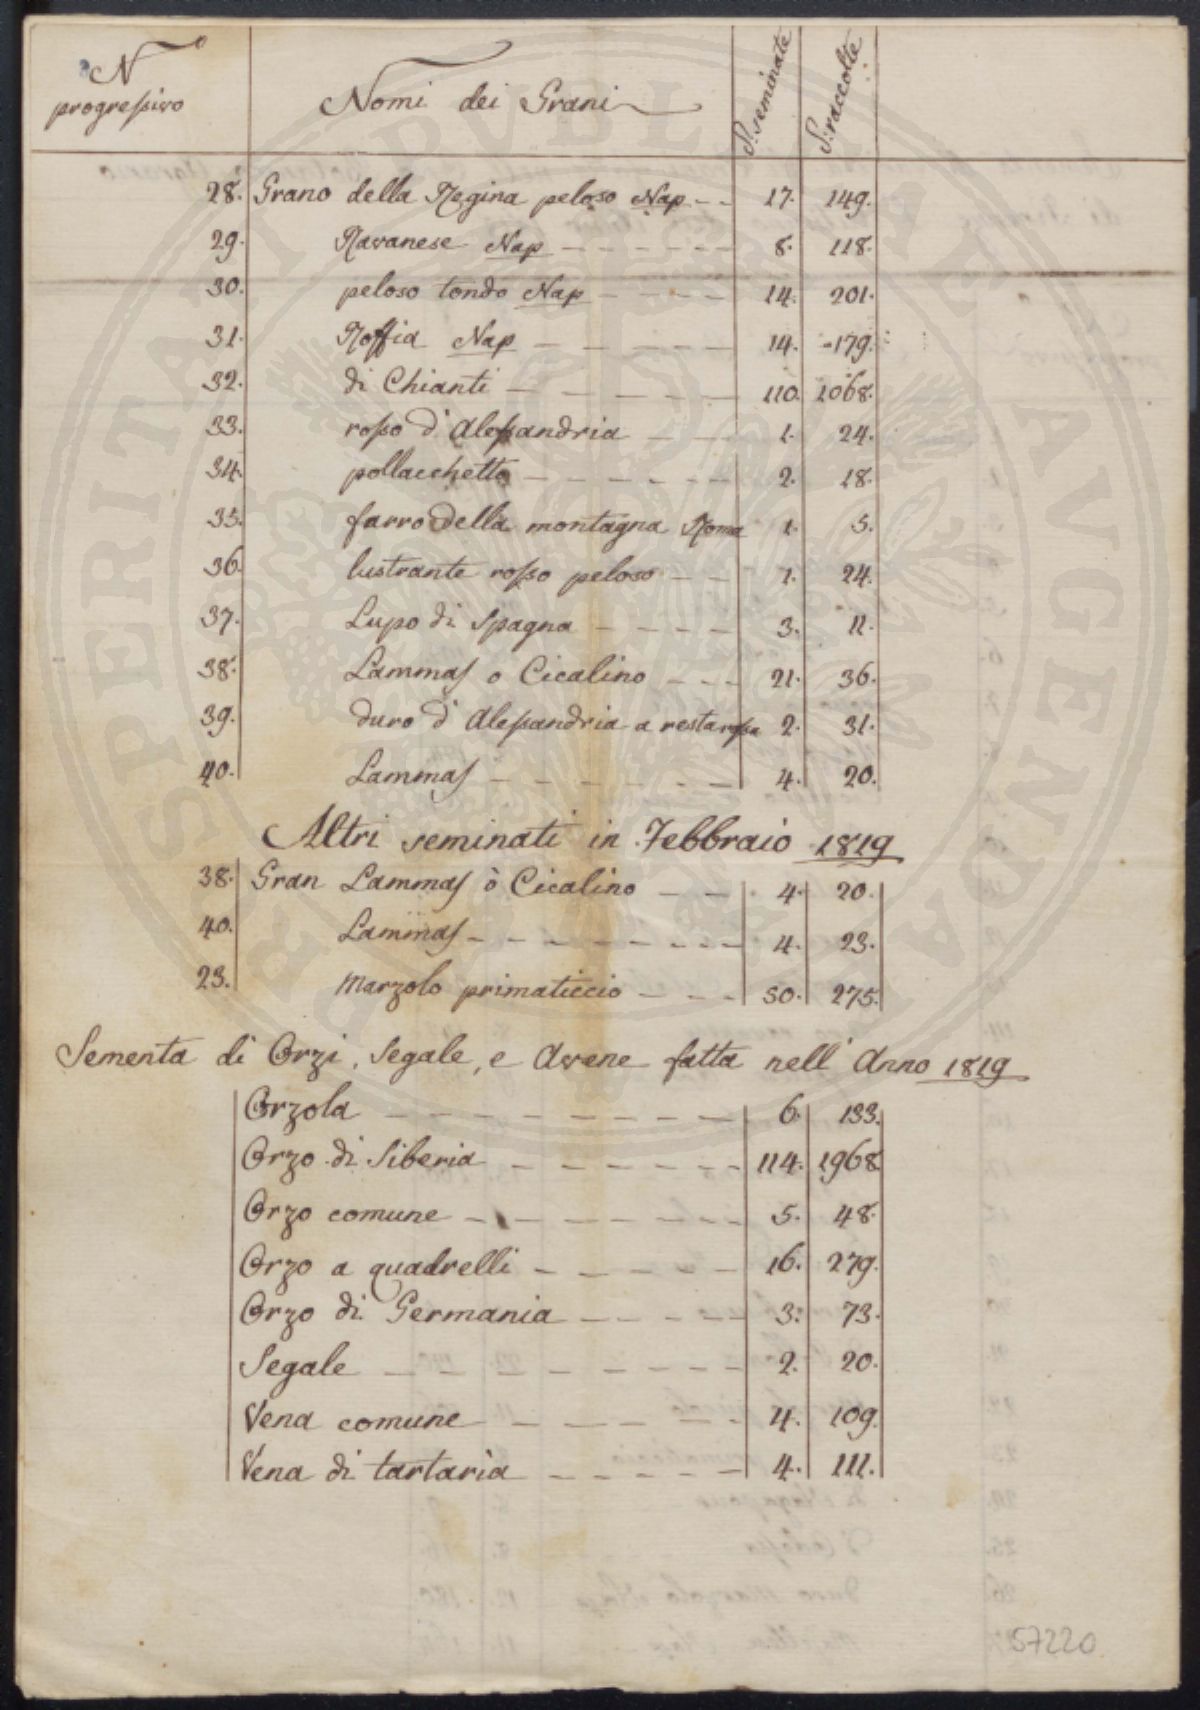 N.o progressivo | Nomi dei Grani | S. seminate | S. raccolte
28. Grano della Regina peloso Nap -- 17. 149.
29. Ravanese Nap ------ 8. 118.
30. peloso tondo Nap ---- 14. 201.
31. Roffia Nap ------ 14. -179.
32. di Chianti ------ 110. 1068.
33. rosso d'Alessandria --- 1. 24.
34. pollacchetto ------ 2. 18.
35. farro della montagna Roma 1. 5.
36. lustrante rosso peloso -- 1. 24.
37. Lupo di Spagna ---- 3. 11.
38. Lammas o Cicalino --- 21. 36.
39. duro d'Alessandria a resta rossa 2. 31.
40. Lammas ------ 4. 20.
Altri seminati in Febbraio 1819
38. Gran Lammas ò Cicalino --- 4. 20.
40. Lammas ------- 4. 23.
23. Marzolo primaticcio --- 30. 275.
Sementa di Orzi, Segale, e Avene fatta nell'Anno 1819
Orzola -------- 6. 133.
Orzo di Siberia ------ 114. 1968
Orzo comune ------- 5. 48.
Orzo a quadrelli ----- 16. 279.
Orzo di Germania ----- 3. 73.
Segale -------- 2. 20.
Vena comune ------ 4. 109.
Vena di tartaria ----- 4. 111.
57220
PROSPERITATI PVBLICAE AVGENDAE